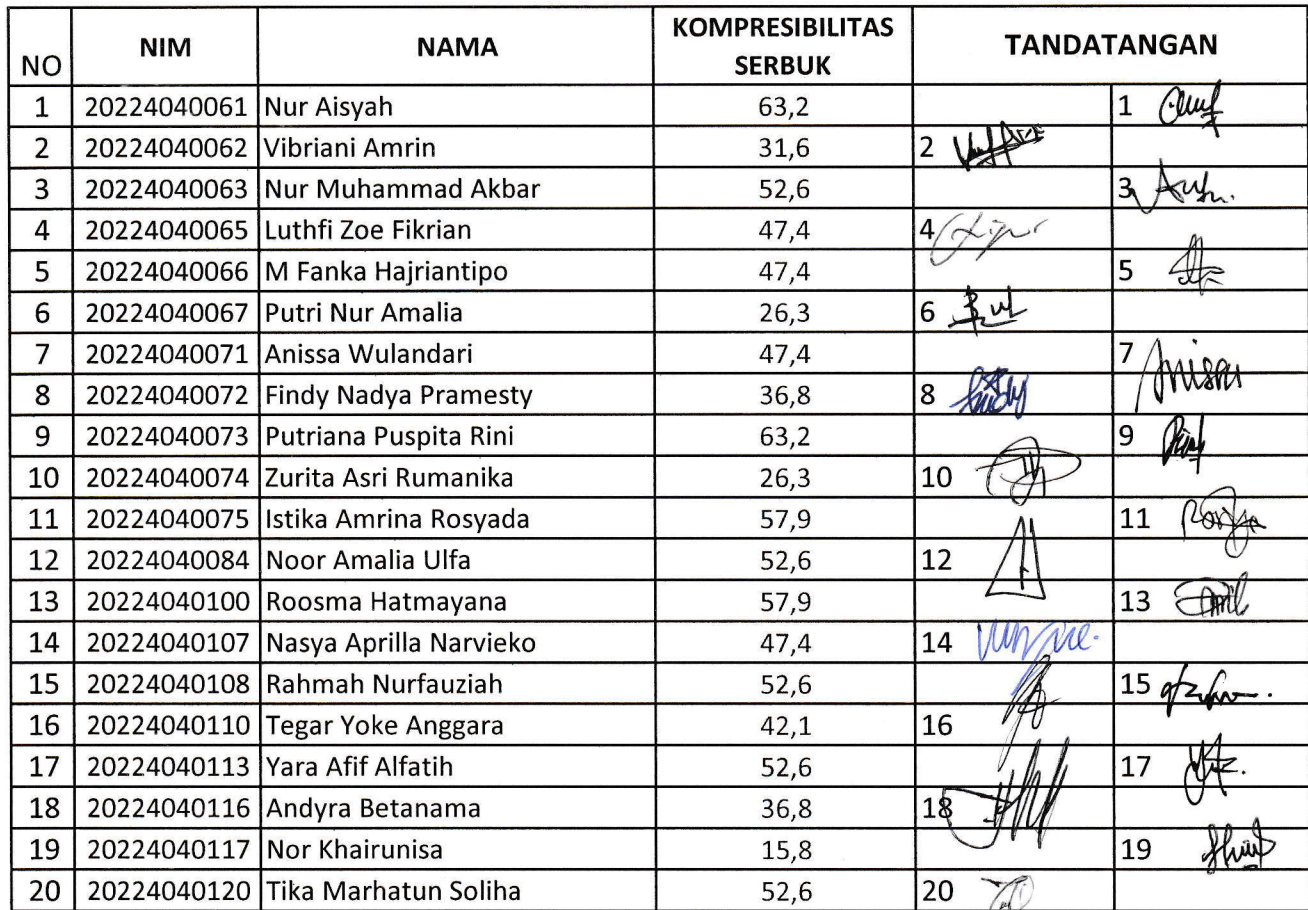 NO NIM NAMA KOMPRESIBILITAS SERBUK TANDATANGAN
1 20224040061 Nur Aisyah 63,2 1
2 20224040062 Vibriani Amrin 31,6 2
3 20224040063 Nur Muhammad Akbar 52,6 3
4 20224040065 Luthfi Zoe Fikrian 47,4 4
5 20224040066 M Fanka Hajriantipo 47,4 5
6 20224040067 Putri Nur Amalia 26,3 6
7 20224040071 Anissa Wulandari 47,4 7
8 20224040072 Findy Nadya Pramesty 36,8 8
9 20224040073 Putriana Puspita Rini 63,2 9
10 20224040074 Zurita Asri Rumanika 26,3 10
11 20224040075 Istika Amrina Rosyada 57,9 11
12 20224040084 Noor Amalia Ulfa 52,6 12
13 20224040100 Roosma Hatmayana 57,9 13
14 20224040107 Nasya Aprilla Narvieko 47,4 14
15 20224040108 Rahmah Nurfauziah 52,6 15
16 20224040110 Tegar Yoke Anggara 42,1 16
17 20224040113 Yara Afif Alfatih 52,6 17
18 20224040116 Andyra Betanama 36,8 18
19 20224040117 Nor Khairunisa 15,8 19
20 20224040120 Tika Marhatun Soliha 52,6 20